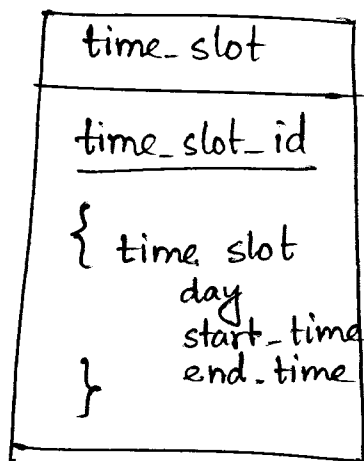 time_slot
time_slot_id
{ time slot
day
start_time
end_time
}